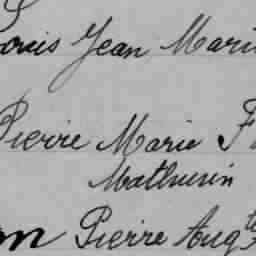 Louis Jean Marie
Pierre Marie
Mathurin
Pierre Augte